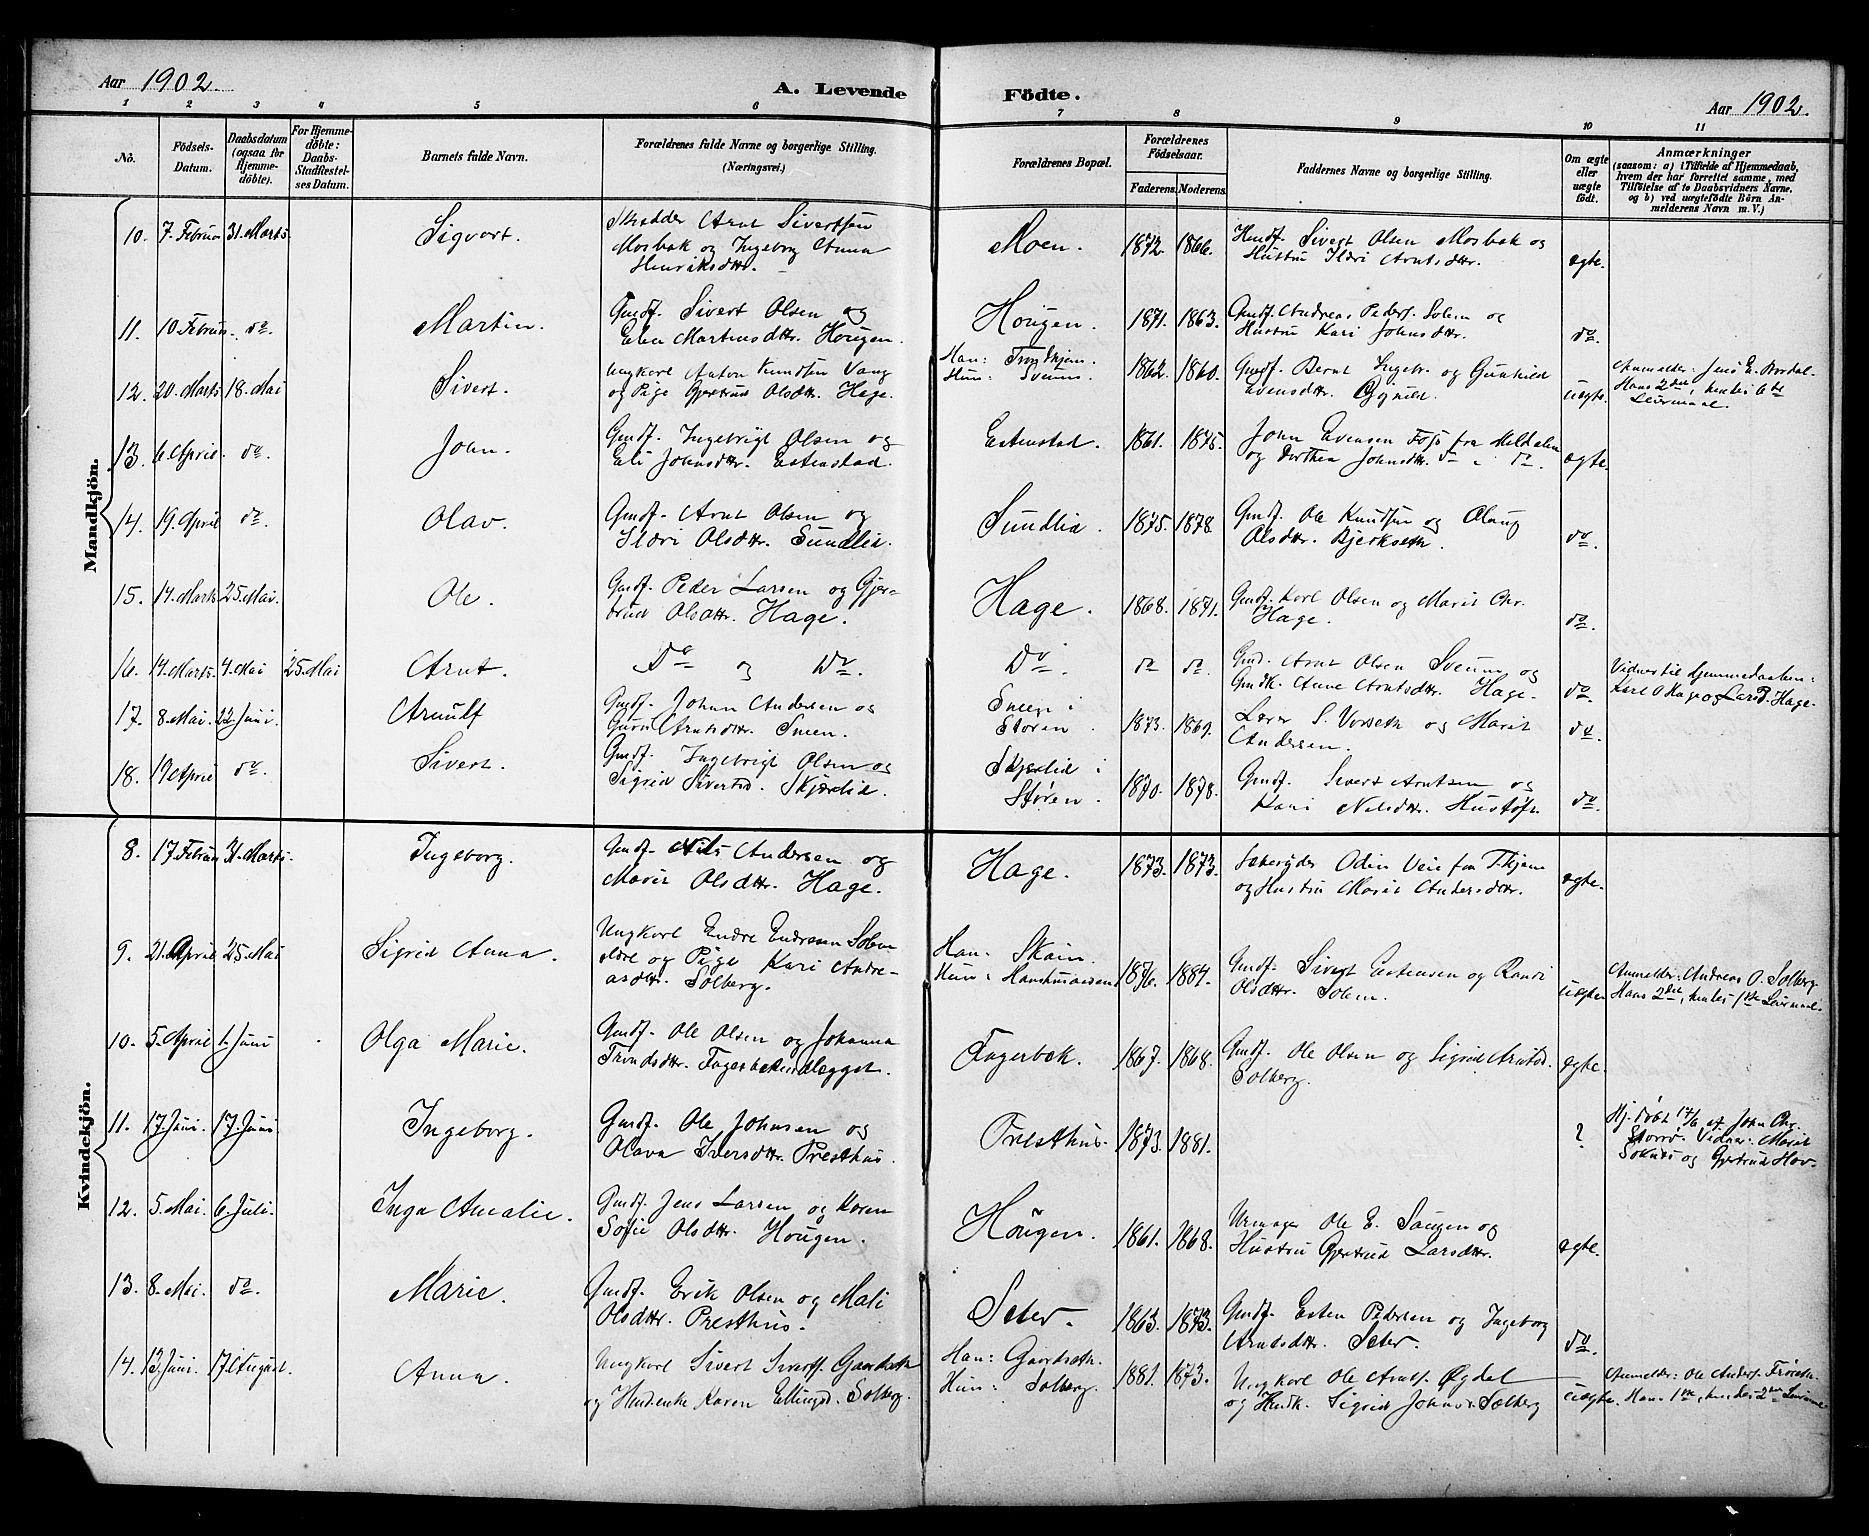 Aar 1902.
A. Levende Födte.
Aar 1902.
1 2 3 4 5 6 7 8 9 10 11
No.
Födsels-Datum.
Daabsdatum (ogsaa for Hjemme-döbte).
For Hjemme-döbte: Daabs-Stadfæstel-ses Datum.
Barnets fulde Navn.
Forældrenes fulde Navne og borgerlige Stilling. (Næringsvei.)
Forældrenes Bopæl.
Forældrenes Födselsaar.
Faderens. Moderens.
Faddernes Navne og borgerlige Stilling.
Om ægte eller uægte födt.
Anmærkninger
(saasom: a) i Tilfælde af Hjemmedaab, hvem der har forrettet samme, med Tilföielse af to Daabsvidners Navne, og b) ved uægtefödte Börn Anmelderens Navn m. V.)
Mandkjön.
10. 7. Februar 31. Marts. Sigvart. Skrædder Arnt Sivertsen
Mosbak og Ingeborg Anna
Henriksdtr. Moen. 1872. 1866. Sivert Olsen Mosbak og
Hustru Ildri Arntsdtr. ægte.
11. 10. Februar. do. Martin. Gmdf. Sivert Olsen og
Elen Martinsdtr. Hougen. Hougen. 1871. 1863. Gmdf. Andreas Peders. Solem og
Hustru Kari Johnsdtr. do.
12. 20. Marts 18. Mai Sivert. Ungkarl Anton Knudsen Vang
og Pige Gjertrud Olsdtr. Hage. Han: Trondhjem.
Hun: Sveum. 1862. 1860. Gmdf. Bernt Ingebr. og Gunhild
Evensdtr. uægte. Anmelder: Jens E. Aardal.
Hans 2det, hendes 6te
Leiermaal.
13. 6. April. do. John. Gmdf. Ingebrigt Olsen og
Eli Johnsdtr. Estenstad. Estenstad. 1861. 1875. John Evensen fra Meldalen
og Dorthea Johnsdtr. do i do. ægte.
14. 19. April do. Olav. Gmdf. Arnt Olsen og
Ildri Olsdtr. Sundlia. Sundlia. 1875. 1878. Gmdf. Ole Knudsen og Olaug
Olsdtr. Bjerkseth. do.
15. 14. Marts 25. Mai. Ole. Gmdf. Peder Larsen og Gjer-
trud Olsdtr. Hage. Hage. 1868. 1871. Gmdf. Karl Olsen og Marit Chr.
Hage. do.
16. 14. Marts. 4. Mai 25. Mai Arnt. Do og Do. Do. do do. Gmd. Arnt Olsen Sveum og
Gmdk. Anne Arntsdtr. Hage. do Vidner til Hjemmedaaben:
Karl O. Hage og Lars P. Hage.
17. 8. Mai. 22. Juni. Arnulf Gmdf. Johan Andersen og
Guru Arntsdtr. Sneen. Sneen i
Støren. 1873. 1869. Lærer S. Vorseth og Marit
Andersen. do.
18. 19 April do. Sivert. Gmdf. Ingebrigt Olsen og
Sigrid Sivertsd. Skjærlid. Skjerlid i
Støren. 1870. 1878. Gmdf. Sivert Arntsen og
Kari Nilsdtr. Hustoft. do.
Kvindekjön.
8. 17. Februar 31. Marts. Ingeborg. Gmdf. Nils Andersen og
Marit Olsdtr. Hage. Hage. 1873. 1873. Odin Veie fra T.hjem
og Hustru Marit Andersdtr. ægte.
9. 21. April 25. Mai Sigrid Anna. Ungkarl Endre Endresen
og Pige Kari Andre-
asdtr. Solberg. Han: Skain.
Hun: 1876. 1884. Gmdf. Sivert Estensen og Randi
Olsdtr. Solem. uægte Anmelder: Andreas O. Solberg.
Hans 2det, hendes 1ste Leiermaal.
10. 5. April 1. Juni Olga Marie. Gmdf. Ole Olsen og Johanna
Trondsdtr. Fagerbakindlegget. Fagerbak. 1867. 1868. Gmdf. Ole Olsen og Sigrid Arntsd.
Solberg. ægte.
11. 17. Juni. 17. Juni Ingeborg. Gmdf. Ole Johnsen og
Olava Iversdtr. Presthus. Presthus. 1873. 1881. ? Hj. døbt 17/6 af John Chr.
Storrø. Vidner: Marit
Soknæs og Gjertrud Hov.
12. 5. Mai. 6. Juli. Inga Amalie. Gmdf. Jens Larsen og Karen
Sofie Olsdtr. Hougen. Hougen. 1861. 1868. Urmager Ole E. Haugen og
Hustru Gjertrud Larsdtr. ægte.
13. 8. Mai. do. Marie. Gmdf. Erik Olsen og Mali
Olsdtr. Presthus. Seter. 1863. 1873. Gmdf. Esten Pedersen og Ingeborg
Arntsdtr. Seter. do.
14. 13. Juni. 17. August. Anna. Ungkarl Sivert Sivertsf. Gaardseth
og Karen Ellingsd. Solberg. Han: Gaardseth.
Hun: Solberg. 1881. 1873. Ungkarl Ole Arntsf. Øgdal
og Sigrid Johnsd. Solberg uægte. Anmelder: Ole Andersf. Frøseth.
Hans 1ste, hendes 2det Leierm.